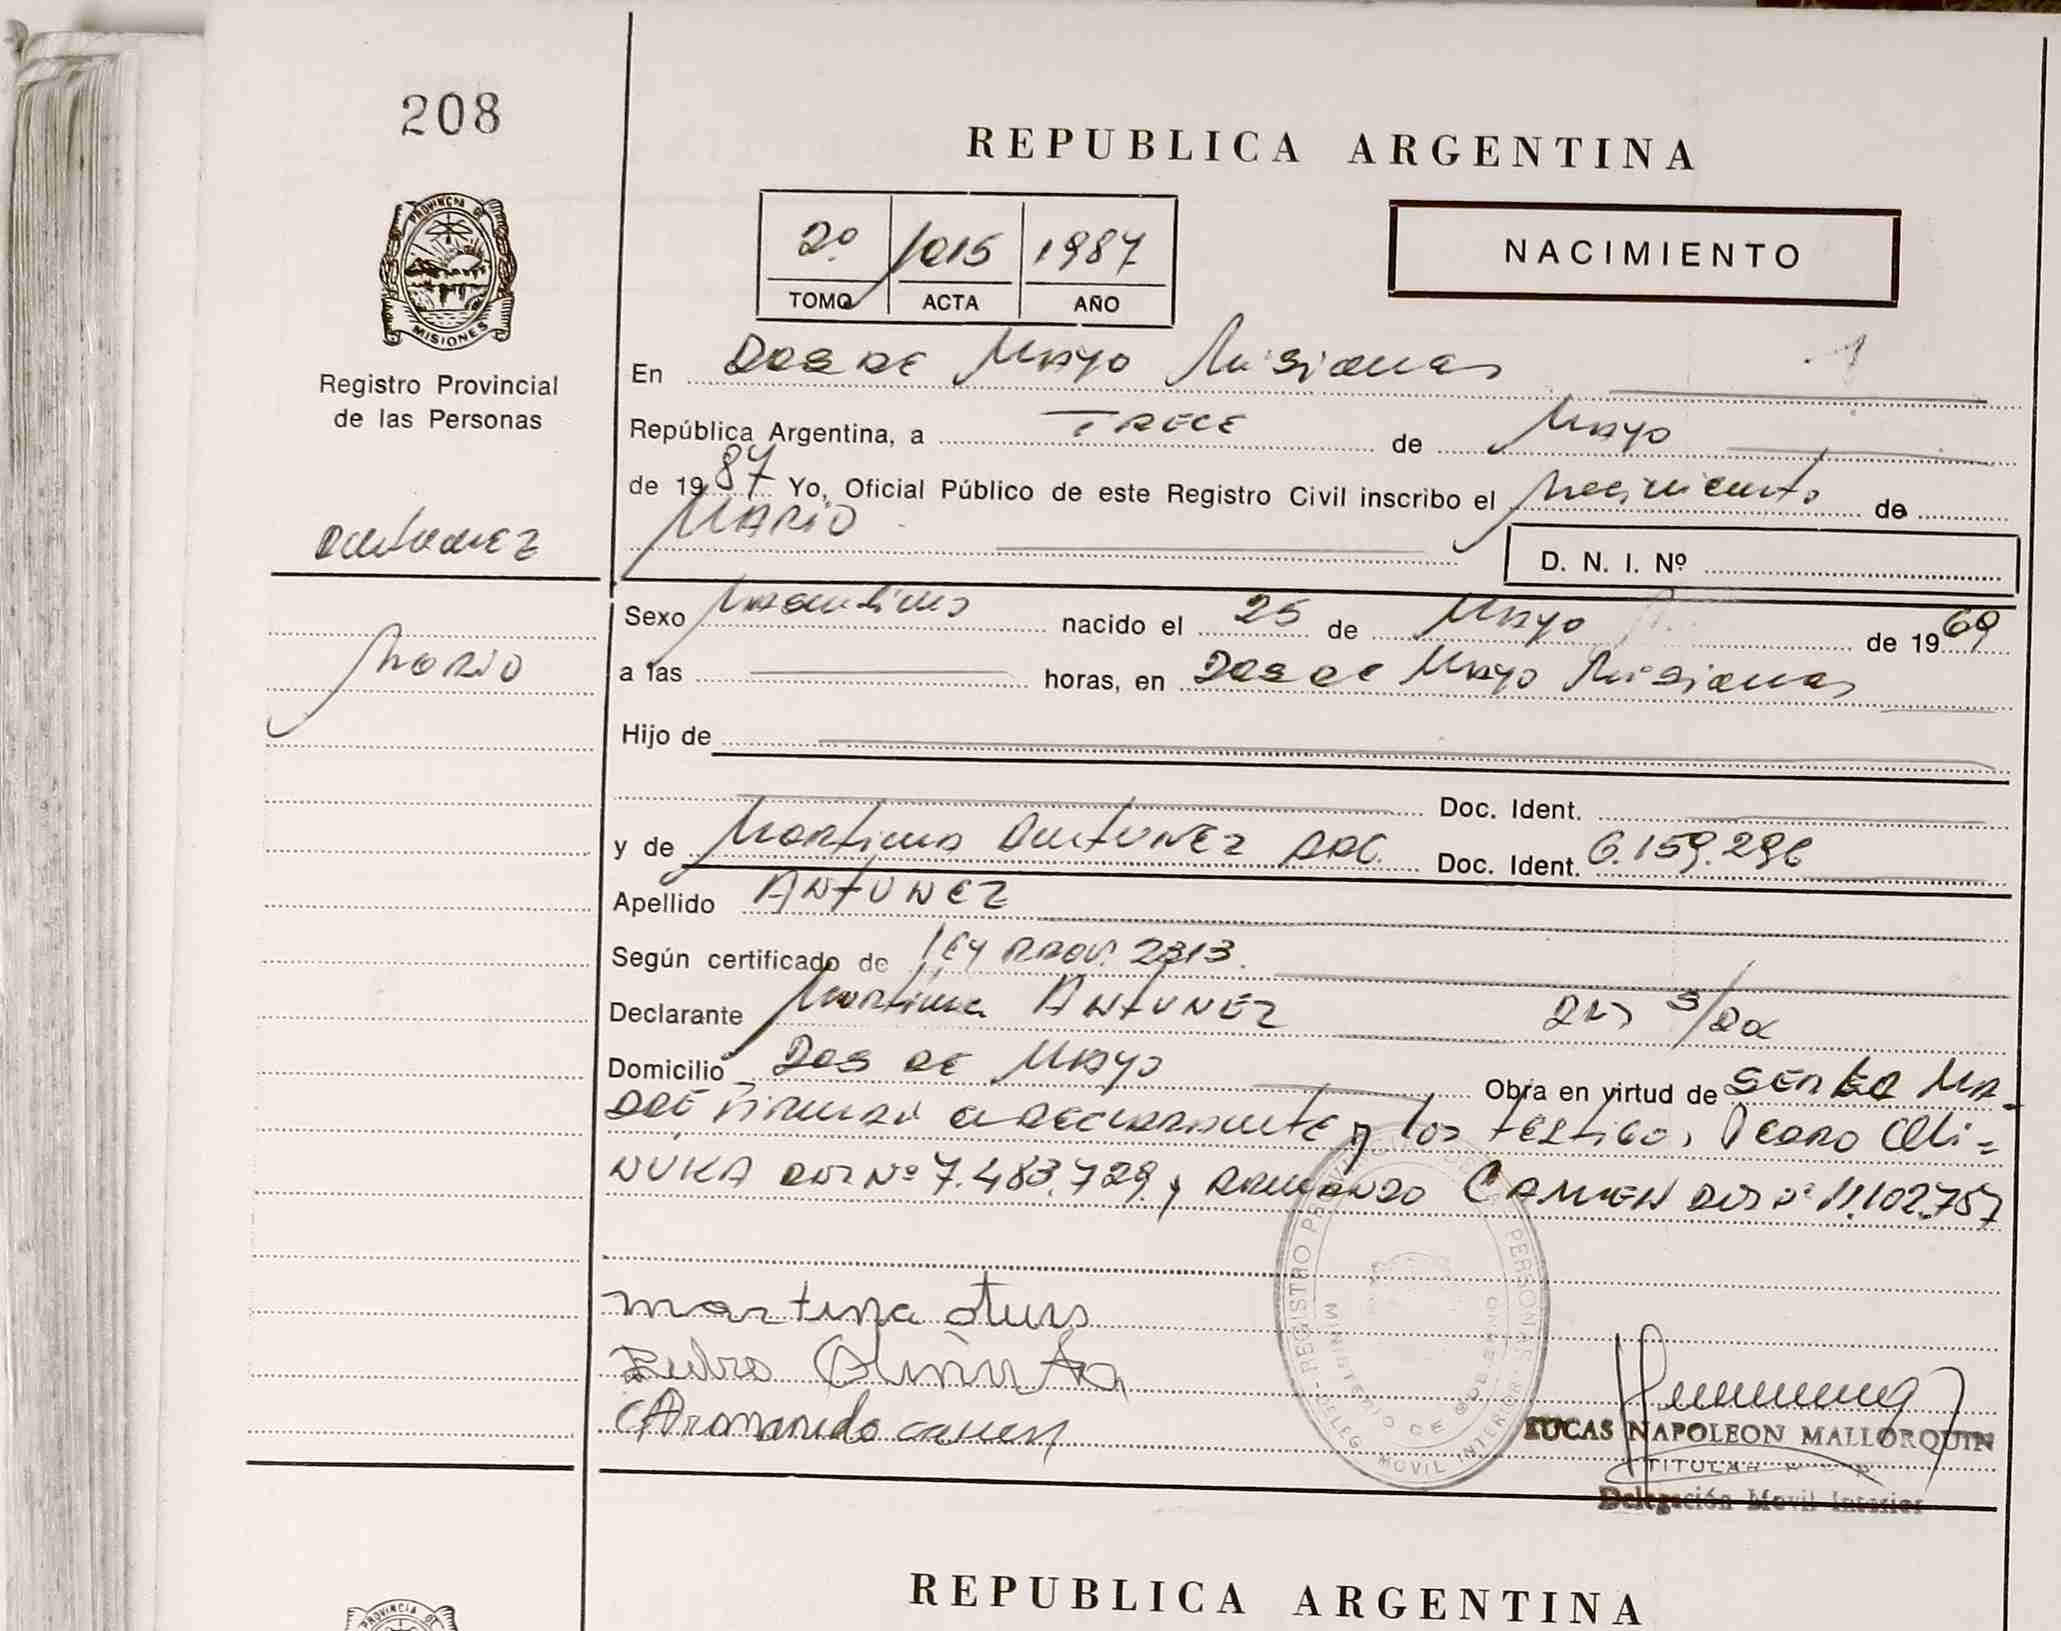 208
REPUBLICA ARGENTINA
PROVINCIA DE
MISIONES
Registro Provincial
de las Personas
2º 1015 1987
TOMO ACTA AÑO
NACIMIENTO
En Dos de Mayo Misiones
República Argentina, a TRECE de Mayo
de 1987 Yo, Oficial Público de este Registro Civil inscribo el Nacimiento de
MARIO
D. N. I. Nº
Antunez
Mario
Sexo Masculino nacido el 25 de Mayo de 1969
a las horas, en Dos de Mayo Misiones
Hijo de
Doc. Ident.
y de Martina Antunez ARG. Doc. Ident. 6.159.296
Apellido ANTUNEZ
Según certificado de Ley PROV. 2313.
Declarante Martina ANTUNEZ
Domicilio Dos de Mayo Obra en virtud de SER LA MA-
DRE Firman la declarante y los testigos Pedro Oli=
NUKA DNI Nº 7.483.729 y Armando CAMEN DNI Nº 11.102.757
martina
Pedro Olinuka
Armando camen
REGISTRO PROVINCIAL DE LAS PERSONAS
MINISTERIO DE GOBIERNO
DELEG. MOVIL INTERIOR
LUCAS NAPOLEON MALLORQUIN
TITULAR
Delegación Movil Interior
REPUBLICA ARGENTINA
PROVINCIA DE